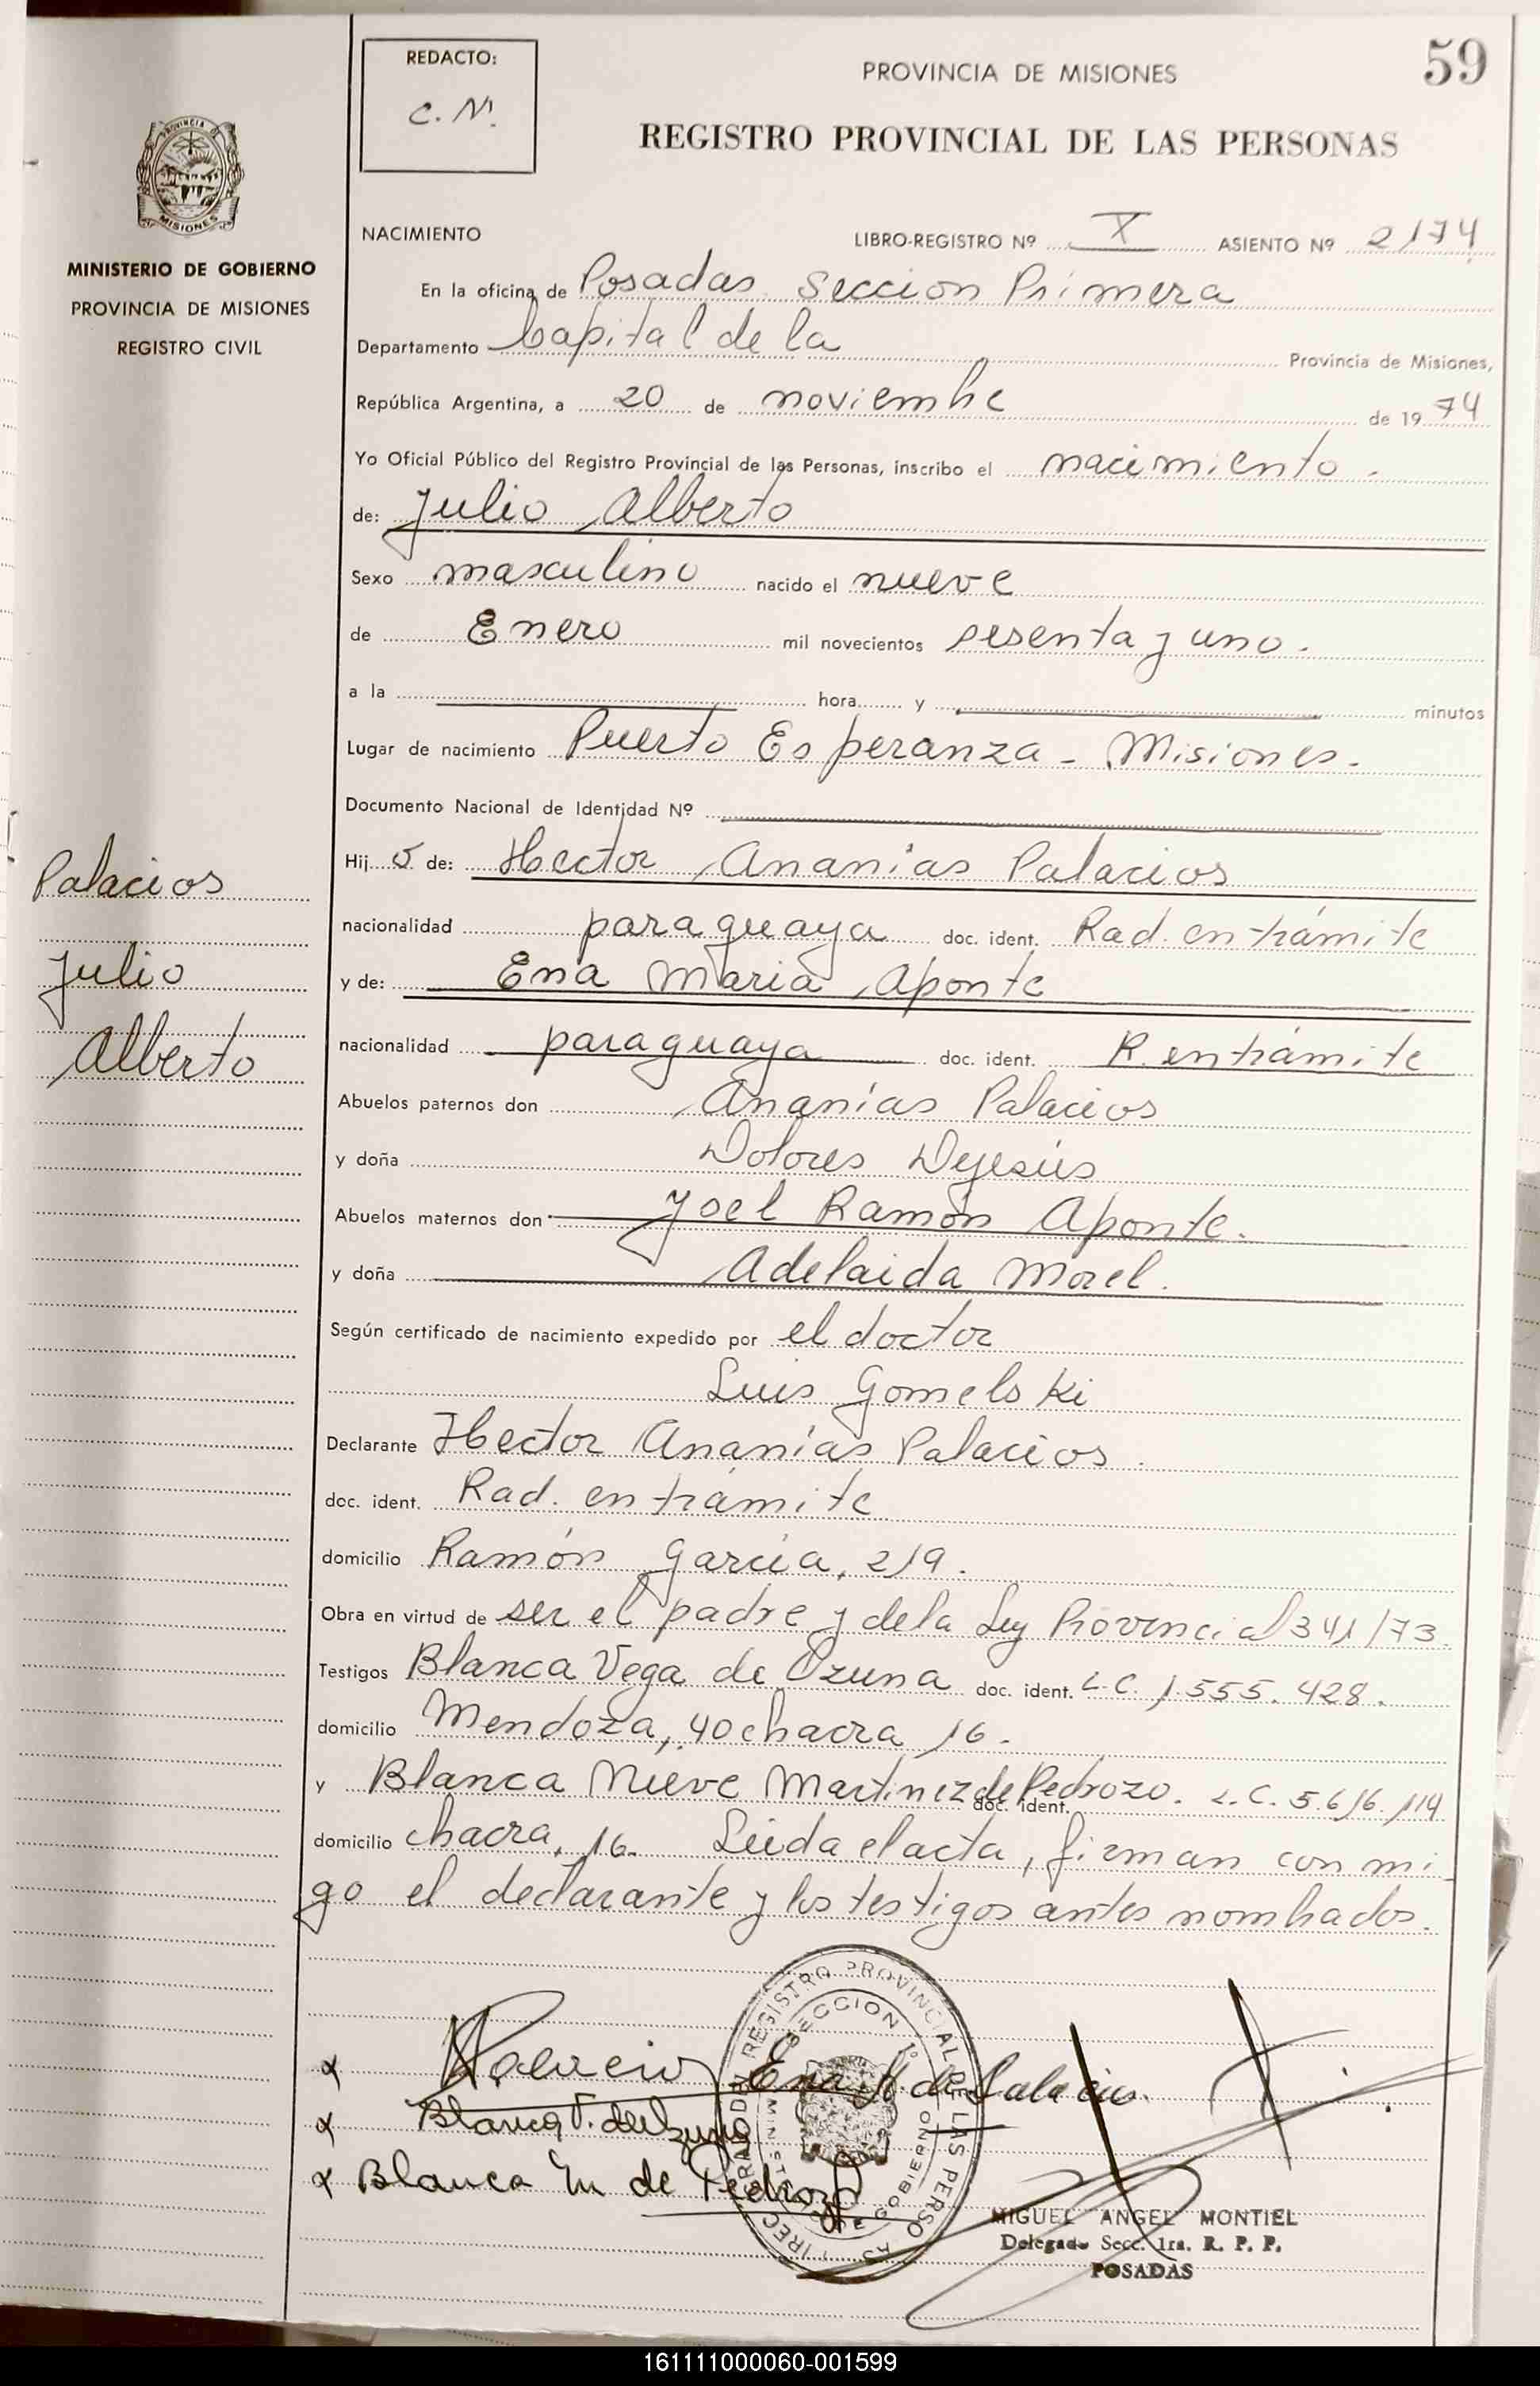 59
REDACTO:
C. N.
PROVINCIA DE MISIONES
REGISTRO PROVINCIAL DE LAS PERSONAS
PROVINCIA
MISIONES
MINISTERIO DE GOBIERNO
PROVINCIA DE MISIONES
REGISTRO CIVIL
NACIMIENTO
LIBRO-REGISTRO Nº X ASIENTO Nº 2174
En la oficina de Posadas Seccion Primera
Departamento Capital de la Provincia de Misiones,
República Argentina, a 20 de noviembre de 1974
Yo Oficial Público del Registro Provincial de las Personas, inscribo el nacimiento.
de: Julio Alberto
Sexo masculino nacido el nueve
de Enero mil novecientos sesenta y uno.
a la hora y minutos
Lugar de nacimiento Puerto Esperanza - Misiones.
Documento Nacional de Identidad Nº
Hijo de: Hector Ananías Palacios
nacionalidad paraguaya doc. ident. Rad. en trámite
y de: Ena Maria Aponte
nacionalidad paraguaya doc. ident. R. en trámite
Abuelos paternos don Ananías Palacios
y doña Dolores Dejesús
Abuelos maternos don Joel Ramón Aponte.
y doña Adelaida Morel.
Según certificado de nacimiento expedido por el doctor
Luis Gomelski
Declarante Hector Ananías Palacios.
doc. ident. Rad. en trámite
domicilio Ramón García, 219.
Obra en virtud de ser el padre y de la Ley Provincial 341/73.
Testigos Blanca Vega de Ozuna doc. ident. L.C. 1.555.428.
domicilio Mendoza, 40 chacra 16.
y Blanca Nieve Martinez de Pedrozo. doc. ident. L.C. 5.616.114
domicilio chacra, 16. Leida el acta, firman con mi
go el declarante y los testigos antes nombrados.
Palacios
Julio
Alberto
Palacios Ena M. de Palacios
Blanca V. de Ozuna
Blanca M de Pedrozo
REGISTRO PROVINCIAL DE LAS PERSONAS
SECCION 1º
MINISTERIO DE GOBIERNO
MIGUEL ANGEL MONTIEL
Delegado Secc. 1ra. R. P. P.
POSADAS
161111000060-001599